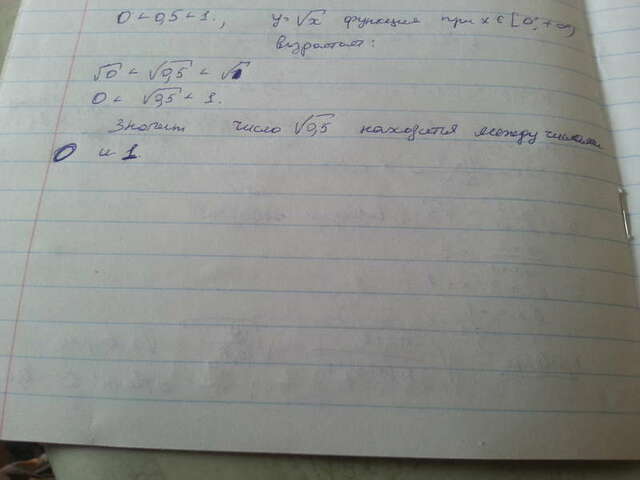 0 < 0,5 < 1., y=√x функция при x ∈ [0; +∞)
возрастает:
√0 < √0,5 < √1
0 < √0,5 < 1.
Значит число √0,5 находится между числами
0 и 1.